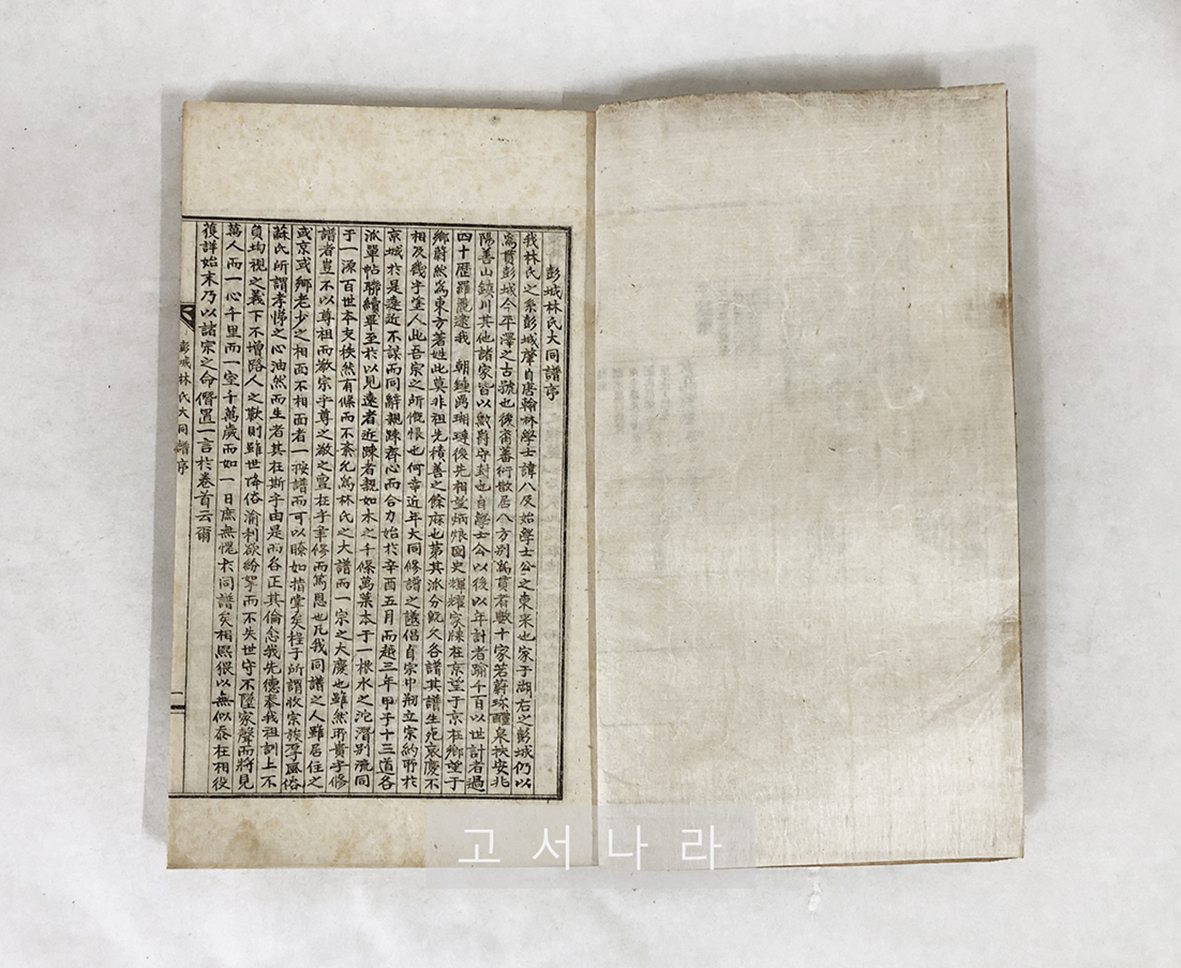 彭城林氏大同譜序
我林氏之系彭城肇自唐翰林學士諱八及始學士公之東来也家于湖右之彭城仍以
為貫彭城今平澤之古號也後裔蕃衍散居八方别為貫者數十家若蔚珍醴泉扶安北
陽善山鎭川其他諸家皆以勳爵守封也自學士公以後以年計者踰千百以世計者過
四十歷羅麗逮我 朝鍾禹瑚璉後先相望炳烺國史輝耀家牒在京望于京在鄉望于
鄉蔚然為東方著姓此莫非祖先積善之餘庥也第其派分旣久各譜其譜生死哀慶不
相及幾乎塗人此吾宗之所慨恨也何幸近年大同修譜之議倡自宗中刱立宗約所於
京城於是遠近不謀而同辭親踈齊心而合力始於辛酉五月而趙三年甲子十三道各
派單帖聯續畢至於以見遠者近踈者親如木之千條萬葉本于一根水之沱潛别流同
于一源百世本支秩然有條而不紊允為林氏之大譜而一宗之大慶也雖然所貴乎修
譜者豈不以尊祖而敬宗乎尊之敬之亶在乎聿修而篤恩也凡我同譜之人雖居住之
或京或鄉老少之相面而不相面者一按譜而可以瞭如指掌矣程子所謂收宗族厚風俗
蘇氏所謂孝悌之心油然而生者其在斯乎由是而各正其倫念我先德奉我祖訓上不
負均視之義下不增路人之歎則雖世降俗渝利欲紛挐而不失世守不墜家聲而將見
萬人而一心千里而一室千萬歲而如一日庶無愧於同譜矣相熙猥以無似忝在相役
後詳始末乃以諸宗之命僭置一言於卷首云爾
彭城林氏大同譜序
一
고서나라